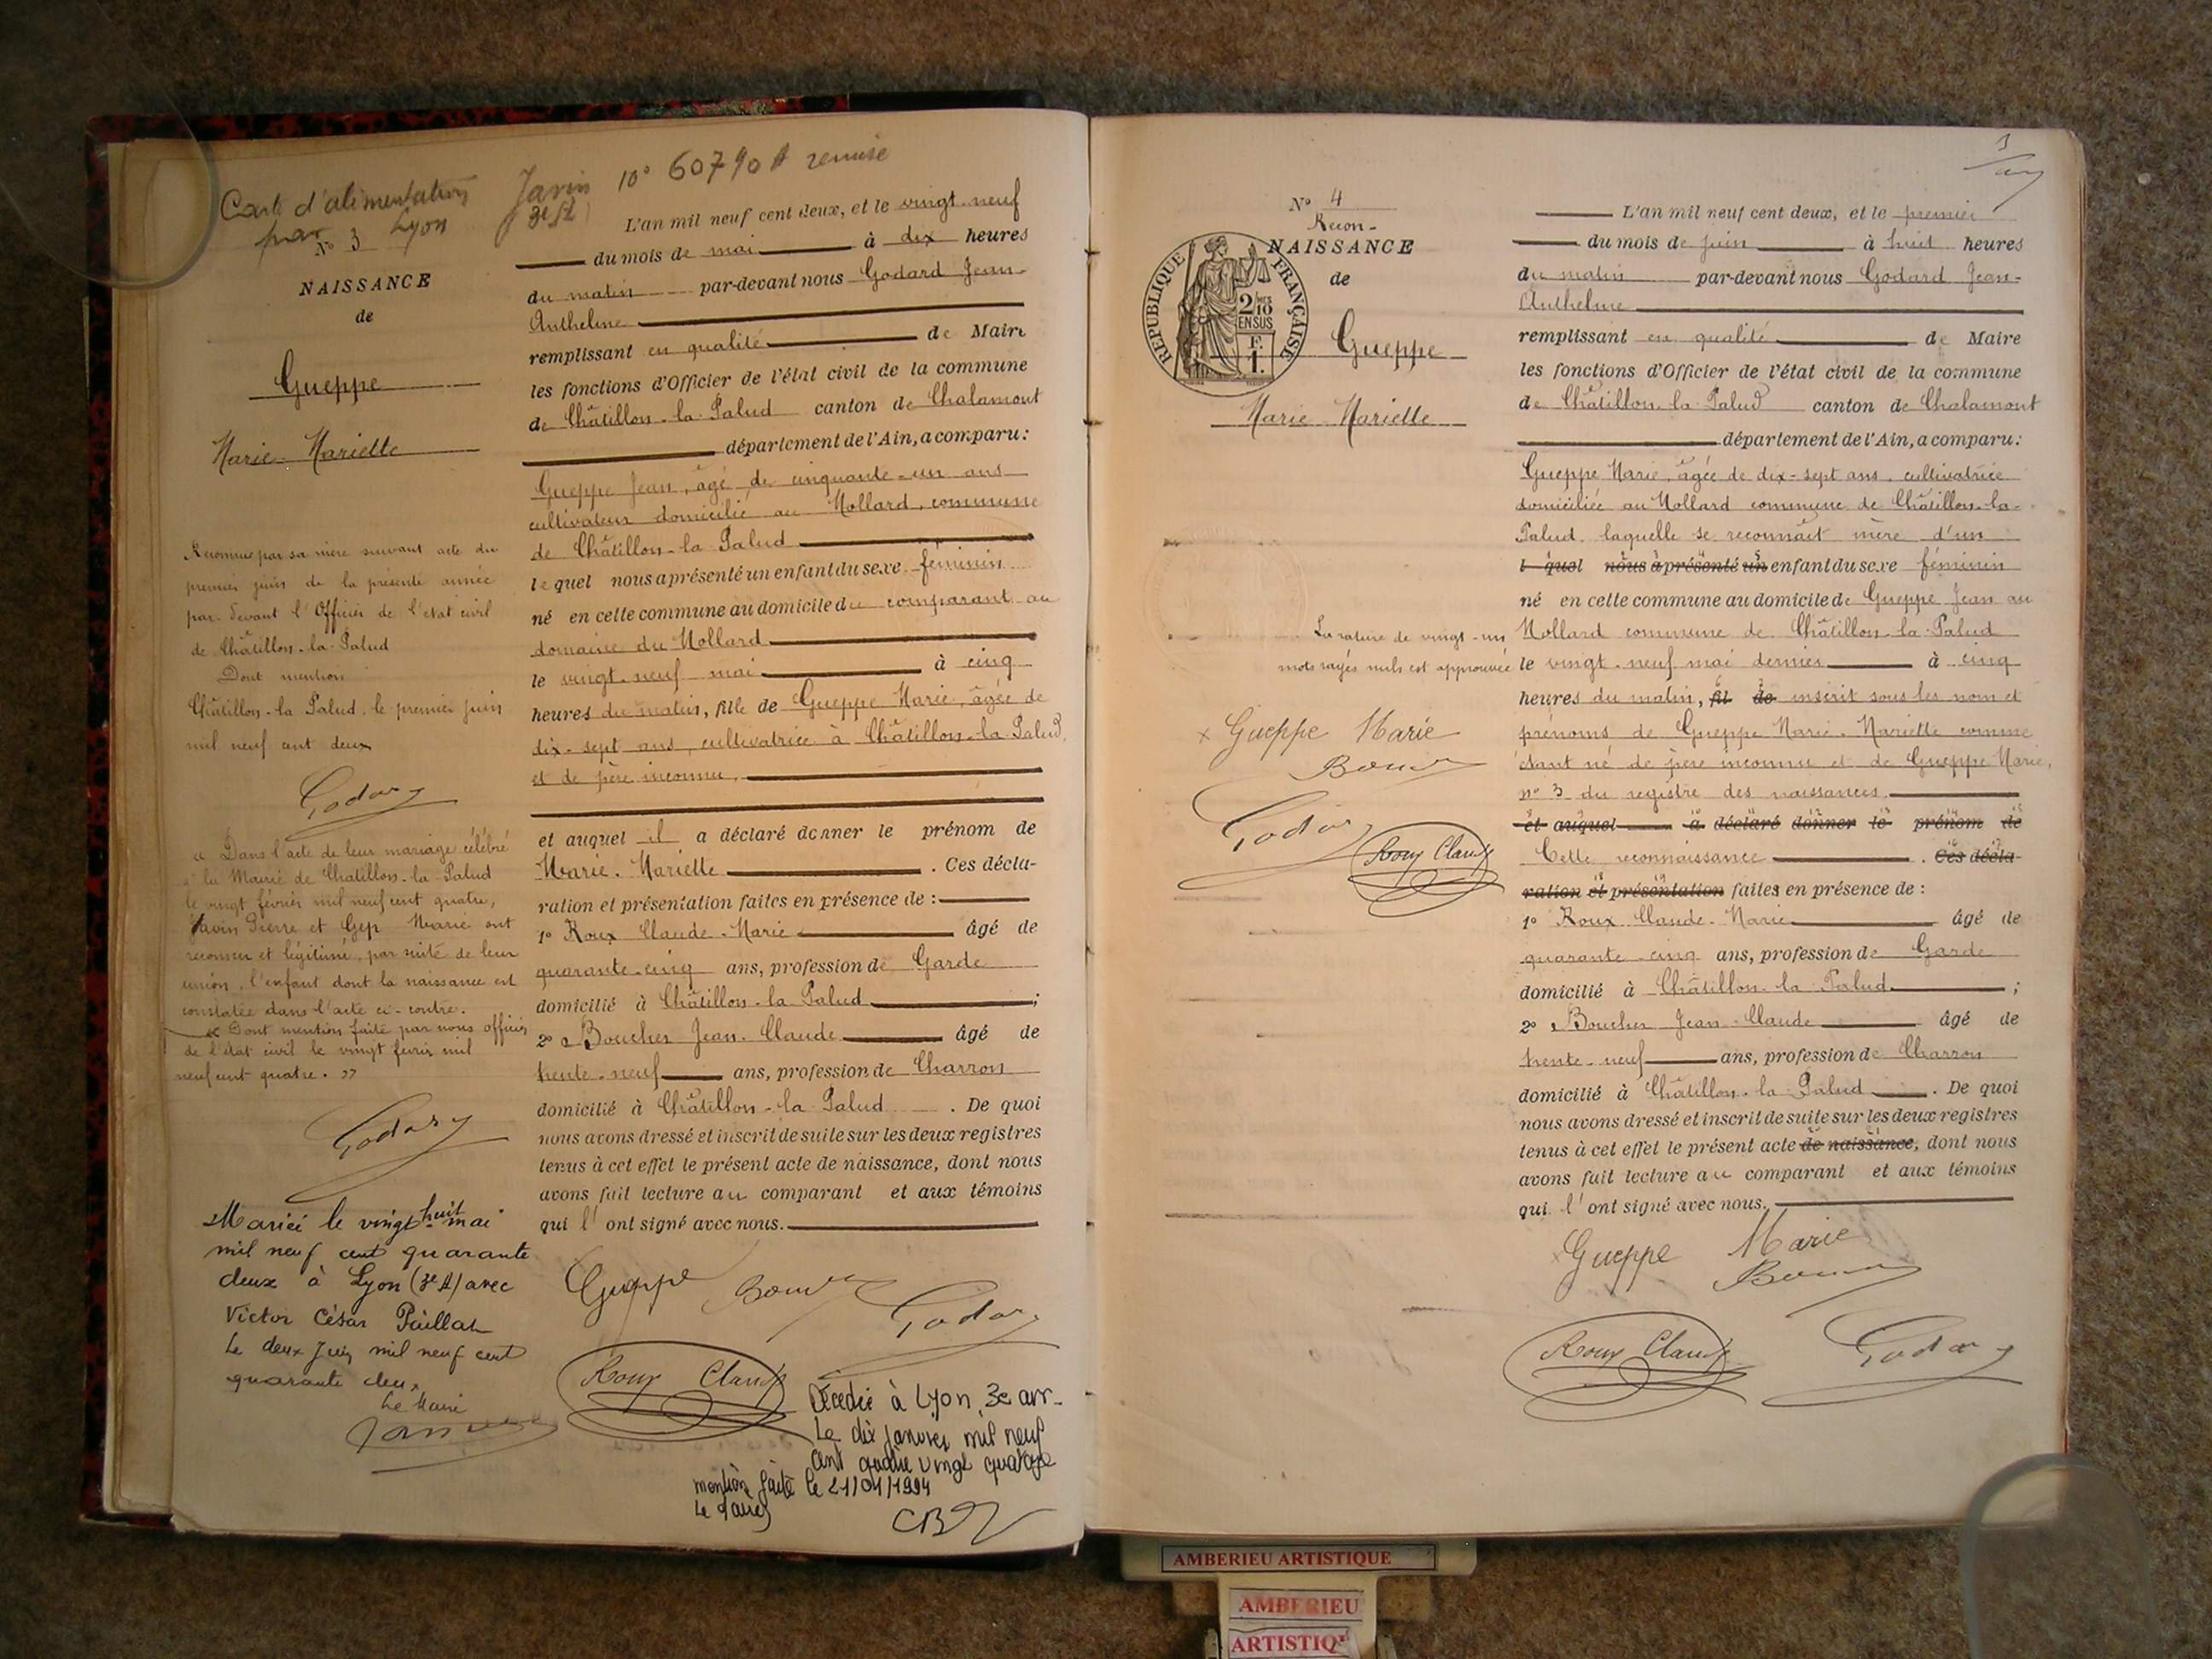 Carte d'alimentation Javin n° 60790 A remise
par Lyon 3e
N° 3
NAISSANCE
de
Gueppe
Marie-Mariette
Reconnue par sa mère suivant acte du
premier juin de la présente année
par-devant l'Officier de l'état civil
de Châtillon-la-Palud
Dont mention
Châtillon-la-Palud, le premier juin
mil neuf cent deux
Godard
« Dans l'acte de leur mariage célébré
à la Mairie de Châtillon-la-Palud
le vingt février mil neuf cent quatre,
Javin Pierre et Gep Marie ont
reconnu et légitimé, par suite de leur
union, l'enfant dont la naissance est
constatée dans l'acte ci-contre.
« Dont mention faite par nous officier
de l'état civil le vingt fevrir mil
neuf cent quatre. »
Godard
Mariée le vingt-huit mai
mil neuf cent quarante
deux à Lyon (3e A) avec
Victor César Paillat
Le deux Juin mil neuf cent
quarante deux
Le Maire
L'an mil neuf cent deux, et le vingt-neuf
du mois de mai à dix heures
du matin par-devant nous Godard Jean-
Anthelme
remplissant en qualité de Maire
les fonctions d'Officier de l'état civil de la commune
de Châtillon-la-Palud canton de Chalamont
département de l'Ain, a comparu:
Gueppe Jean, âgé de cinquante-un ans
cultivateur domicilié au Mollard, commune
de Châtillon-la-Palud
lequel nous a présenté un enfant du sexe féminin
né en cette commune au domicile du comparant au
domaine du Mollard
le vingt-neuf mai à cinq
heures du matin, fille de Gueppe Marie, âgée de
dix-sept ans, cultivatrice à Châtillon-la-Palud,
et de père inconnu,
et auquel il a déclaré donner le prénom de
Marie-Mariette. Ces décla-
ration et présentation faites en présence de:
1° Roux Claude-Marie âgé de
quarante-cinq ans, profession de Garde
domicilié à Châtillon-la-Palud;
2° Boucher Jean-Claude âgé de
trente-neuf ans, profession de Charron
domicilié à Châtillon-la-Palud. De quoi
nous avons dressé et inscrit de suite sur les deux registres
tenus à cet effet le présent acte de naissance, dont nous
avons fait lecture au comparant et aux témoins
qui l'ont signé avec nous.
Gueppe Godard
Roux Claude
Décédée à Lyon, 3e arr.
Le dix janvier mil neuf
cent quatre vingt quatorze
mention faite le 21/01/1994
Le Maire
N° 4
Recon-
NAISSANCE
de
RÉPUBLIQUE FRANÇAISE
2/10
EN SUS
F.
1.
Gueppe
Marie-Mariette
La rature de vingt-un
mots rayés nuls est approuvée
x Gueppe Marie
Godard
Roux Claude
L'an mil neuf cent deux, et le premier
du mois de juin à huit heures
du matin par-devant nous Godard Jean-
Anthelme
remplissant en qualité de Maire
les fonctions d'Officier de l'état civil de la commune
de Châtillon-la-Palud canton de Chalamont
département de l'Ain, a comparu:
Gueppe Marie, âgée de dix-sept ans, cultivatrice
domiciliée au Mollard commune de Châtillon-la-
Palud, laquelle se reconnaît mère d'un
l quel nous a présenté un enfant du sexe féminin
né en cette commune au domicile de Gueppe Jean au
Mollard commune de Châtillon-la-Palud
le vingt-neuf mai dernier à cinq
heures du matin, fil de inscrit sous les nom et
prénoms de Gueppe Marie-Mariette comme
étant né de père inconnu et de Gueppe Marie,
n° 3 du registre des naissances.
et auquel a déclaré donner le prénom de
Cette reconnaissance. Ces décla-
ration et présentation faites en présence de:
1° Roux Claude-Marie âgé de
quarante-cinq ans, profession de Garde
domicilié à Châtillon-la-Palud;
2° Boucher Jean-Claude âgé de
trente-neuf ans, profession de Charron
domicilié à Châtillon-la-Palud. De quoi
nous avons dressé et inscrit de suite sur les deux registres
tenus à cet effet le présent acte de naissance, dont nous
avons fait lecture au comparant et aux témoins
qui l'ont signé avec nous.
Gueppe Marie
Roux Claude Godard
AMBERIEU ARTISTIQUE
AMBERIEU
ARTISTIQ